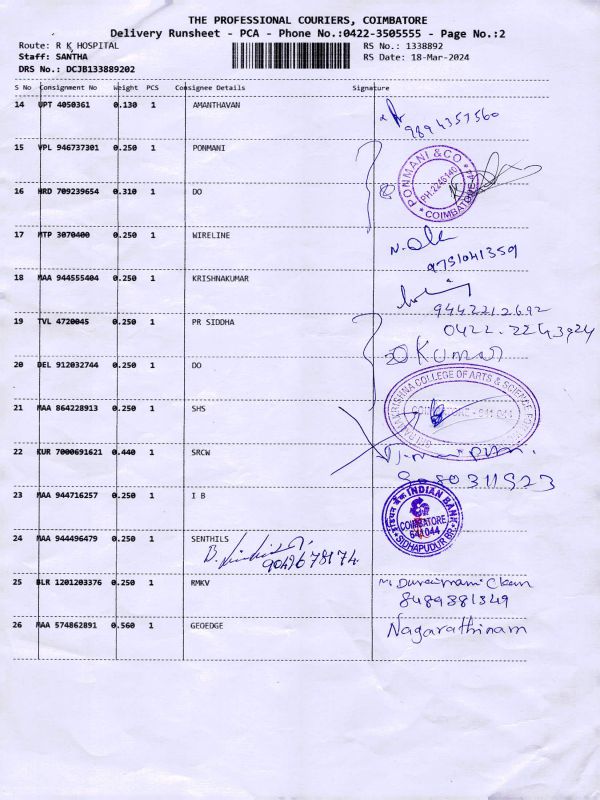 THE PROFESSIONAL COURIERS, COIMBATORE
Delivery Runsheet - PCA - Phone No.:0422-3505555 - Page No.:2
Route: R K HOSPITAL RS No.: 1338892
Staff: SANTHA RS Date: 18-Mar-2024
DRS No.: DCJB133889202
S No Consignment No Weight PCS Consignee Details Signature
14 UPT 4050361 0.130 1 AMANTHAVAN
9894357560
15 VPL 946737301 0.250 1 PONMANI
PONMANI & CO
PH.2246140
COIMBATORE-44
16 HRD 709239654 0.310 1 DO
17 MTP 3070400 0.250 1 WIRELINE
9751041359
18 MAA 944555404 0.250 1 KRISHNAKUMAR
9442212692
19 TVL 4720045 0.250 1 PR SIDDHA
0422-2243924
Kumar
20 DEL 912032744 0.250 1 DO
RAMAKRISHNA COLLEGE OF ARTS & SCIENCE
21 MAA 864228913 0.250 1 SHS
COIMBATORE - 641 044
22 KUR 7000691621 0.440 1 SRCW
23 MAA 944716257 0.250 1 I B
इंडियन बैंक INDIAN BANK
COIMBATORE
641044
SIDHAPUDUR BR.
24 MAA 944496479 0.250 1 SENTHILS
25 BLR 1201203376 0.250 1 RMKV
8489881349
26 MAA 574862891 0.560 1 GEOEDGE Nagarathinam